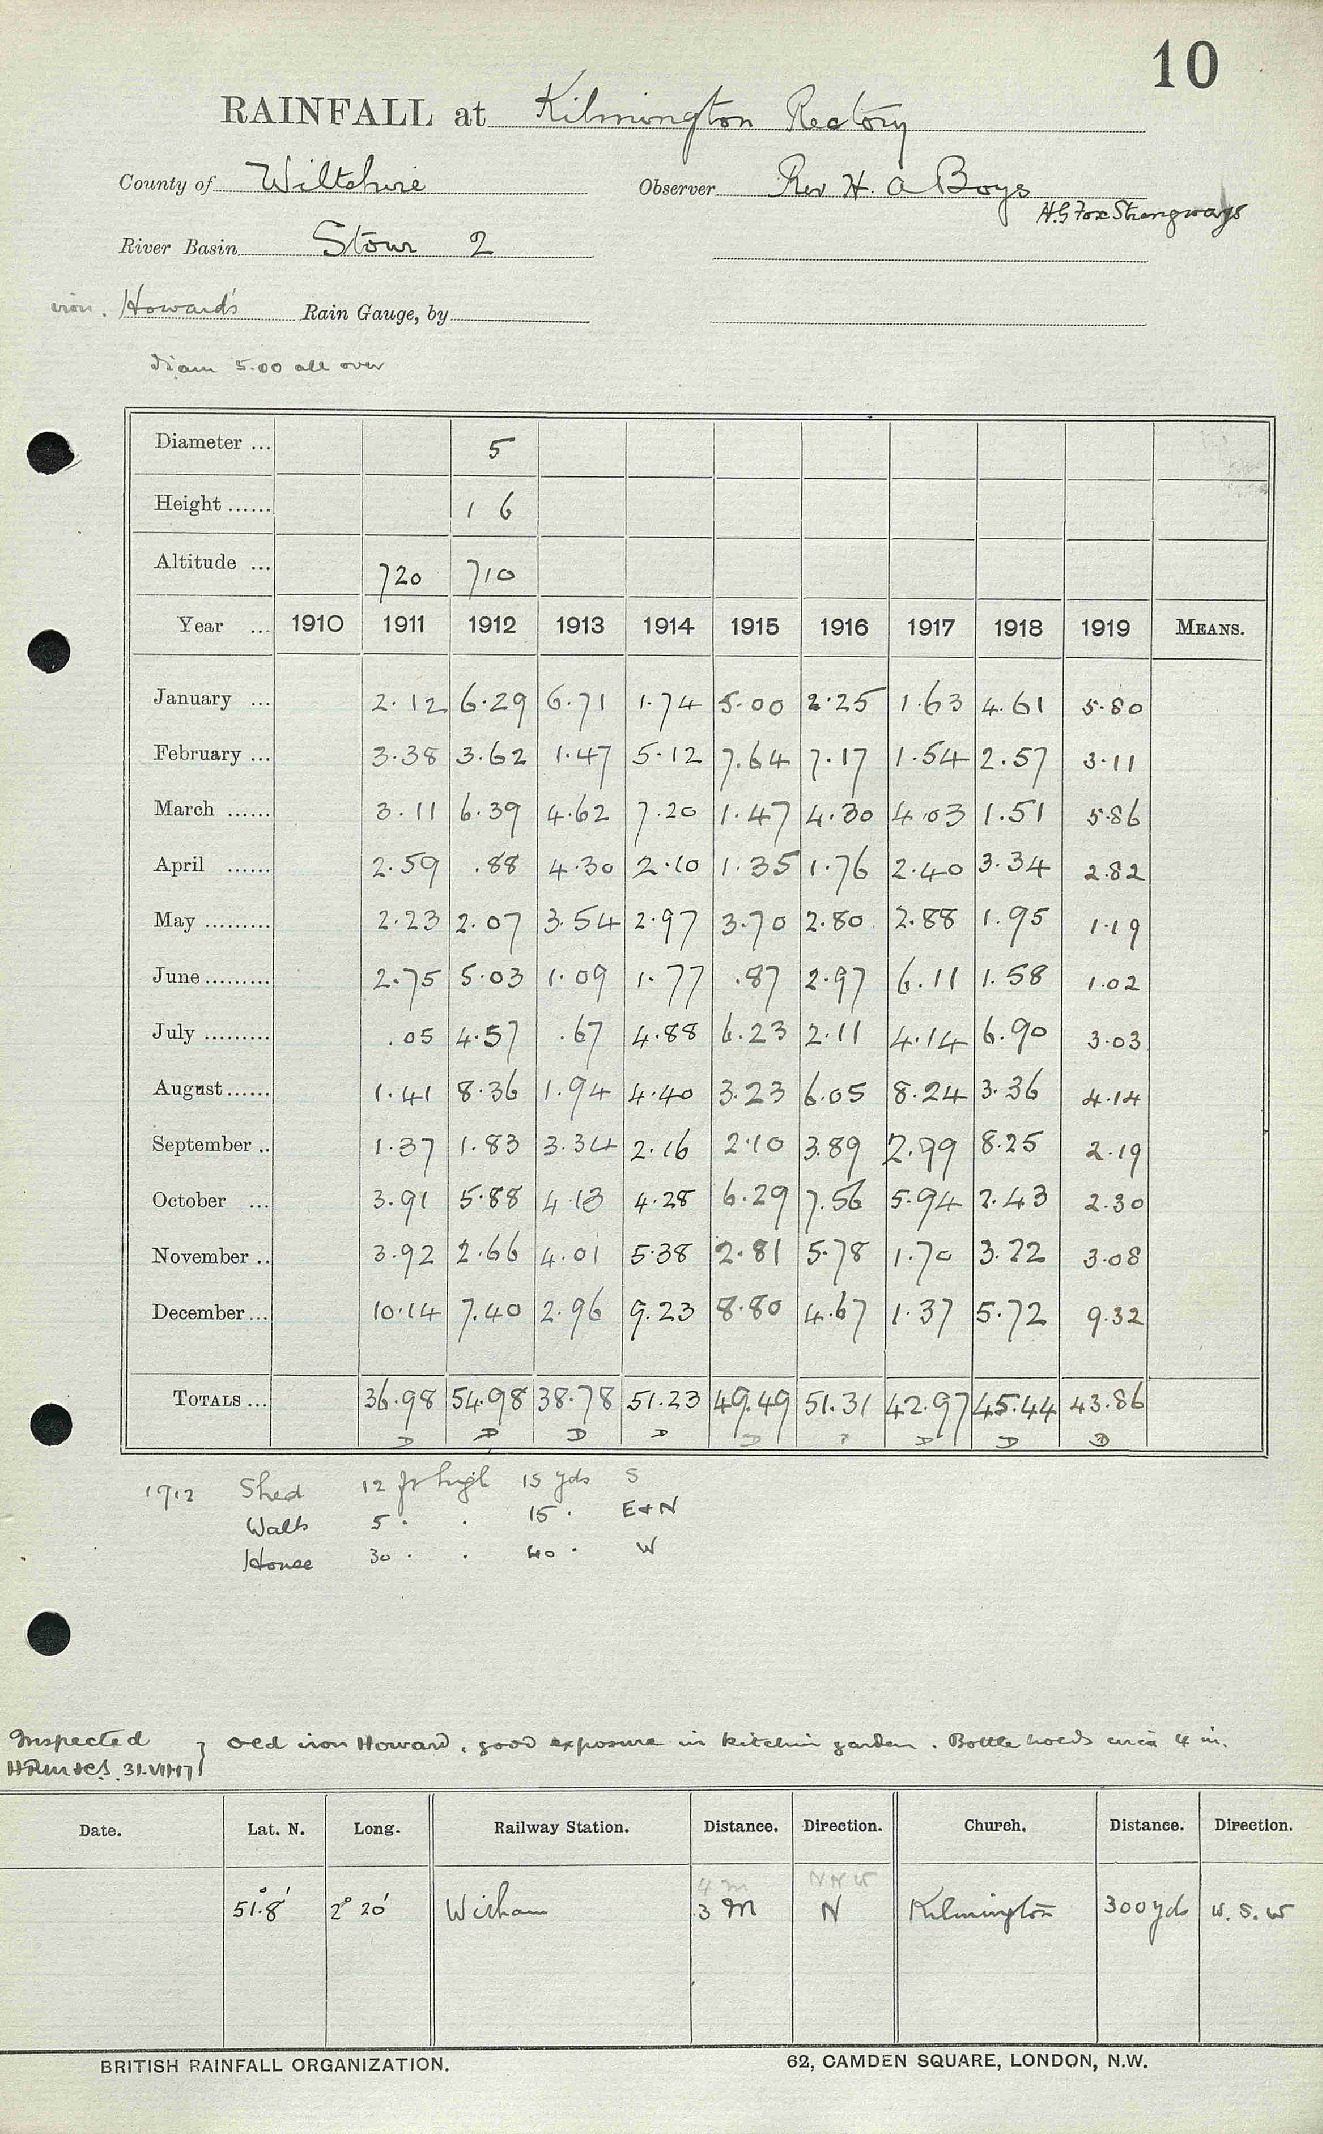 10
RAINFALL at Kilmington Rectory
County of Wiltshire Observer Rev H. A Boys
H.G Fox Strangways
River Basin Stour 2
iron. Howard's Rain Gauge, by
Diam 5.00 all over
Diameter ... 5
Height ...... 1 6
Altitude ... 720 710
Year ... 1910 1911 1912 1913 1914 1915 1916 1917 1918 1919 MEANS.
January ... 2.12 6.29 6.71 1.74 5.00 2.25 1.63 4.61 5.80
February ... 3.38 3.62 1.47 5.12 7.64 7.17 1.54 2.57 3.11
March ...... 3.11 6.39 4.62 7.20 1.47 4.30 4.03 1.51 5.86
April ...... 2.59 .88 4.30 2.10 1.35 1.76 2.40 3.34 2.82
May ......... 2.23 2.07 3.54 2.97 3.70 2.80 2.88 1.95 1.19
June ......... 2.75 5.03 1.09 1.77 .87 2.97 6.11 1.58 1.02
July ......... .05 4.57 .67 4.88 6.23 2.11 4.14 6.90 3.03
August ...... 1.41 8.36 1.94 4.40 3.23 6.05 8.24 3.36 4.14
September .. 1.37 1.83 3.34 2.16 2.10 3.89 2.99 8.25 2.19
October ... 3.91 5.88 4.13 4.28 6.29 7.56 5.94 2.43 2.30
November .. 3.92 2.66 4.01 5.38 2.81 5.78 1.70 3.22 3.08
December ... 10.14 7.40 2.96 9.23 8.80 4.67 1.37 5.72 9.32
TOTALS ... 36.98 54.98 38.78 51.23 49.49 51.31 42.97 45.44 43.86
D D D D D D D D
1912 Shed 12 ft high 15 yds S
Walls 5 . . 15 . E & N
House 30 . . 40 . W
Inspected } Old iron Howard, good exposure in kitchin garden. Bottle holds circa 4 in.
31.VII.17
Date. Lat. N. Long. Railway Station. Distance. Direction. Church. Distance. Direction.
4 m NNW
51° 8' 2° 20' Witham 3 M N Kilmington 300 yds W. S. W
BRITISH RAINFALL ORGANIZATION. 62, CAMDEN SQUARE, LONDON, N.W.